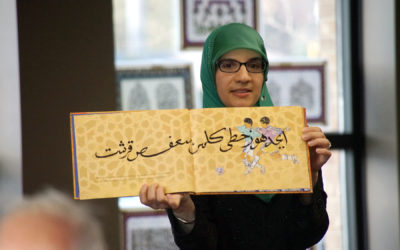 أبجد هوز حطي كلمن سعفص قرشت